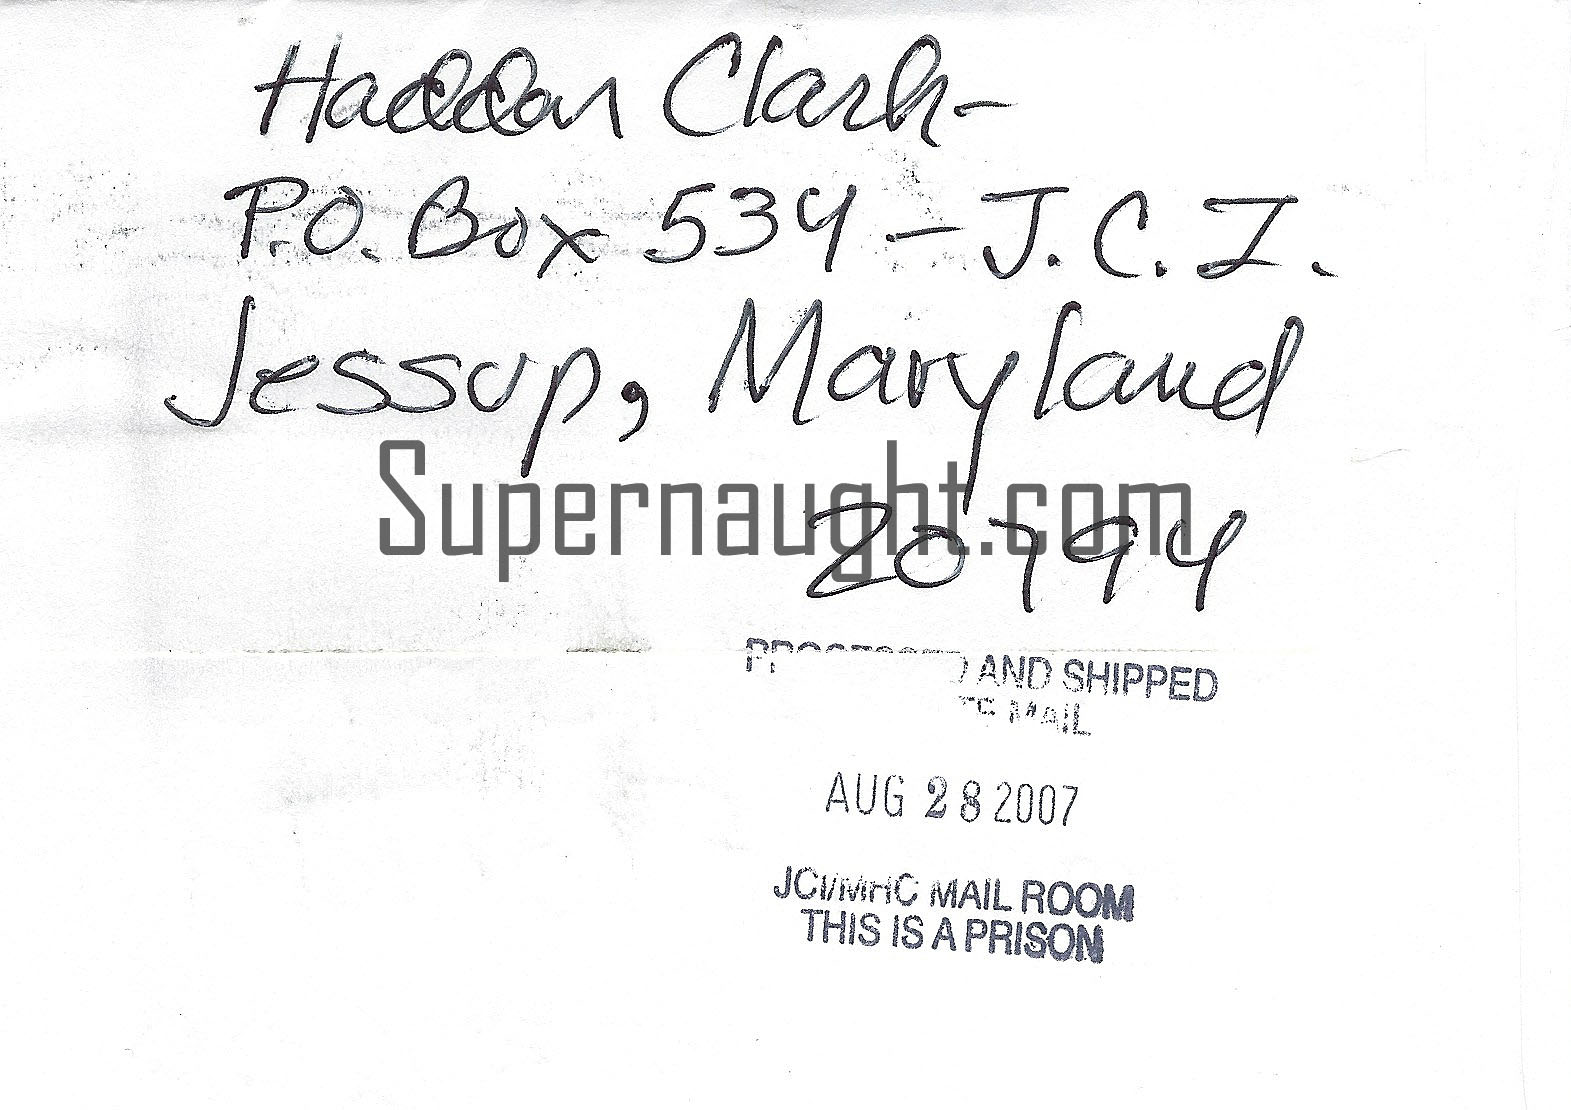 Haddon Clark-
P.O. Box 534 - J.C.I.
Jessup, Maryland
Supernaught.com
20794
AND SHIPPED
MAIL
AUG 28 2007
JCI/MHC MAIL ROOM
THIS IS A PRISON